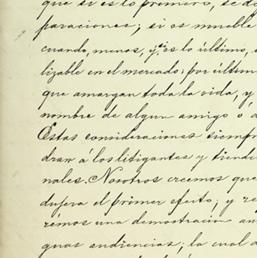 que si es lo primero, se de
paraciones; si os mueble
cuando, menos, y es lo último, e
lizable en el mercado; por últim
que amargan toda la vida, y
nombre de algun amigo ó d
Estas consideraciones siempr
dran á los litigantes y tiendi
nales. Nosotros creemos que
dujera el primer efecto; y re
rémos una demostracion an
guas audiencias, lo cual a